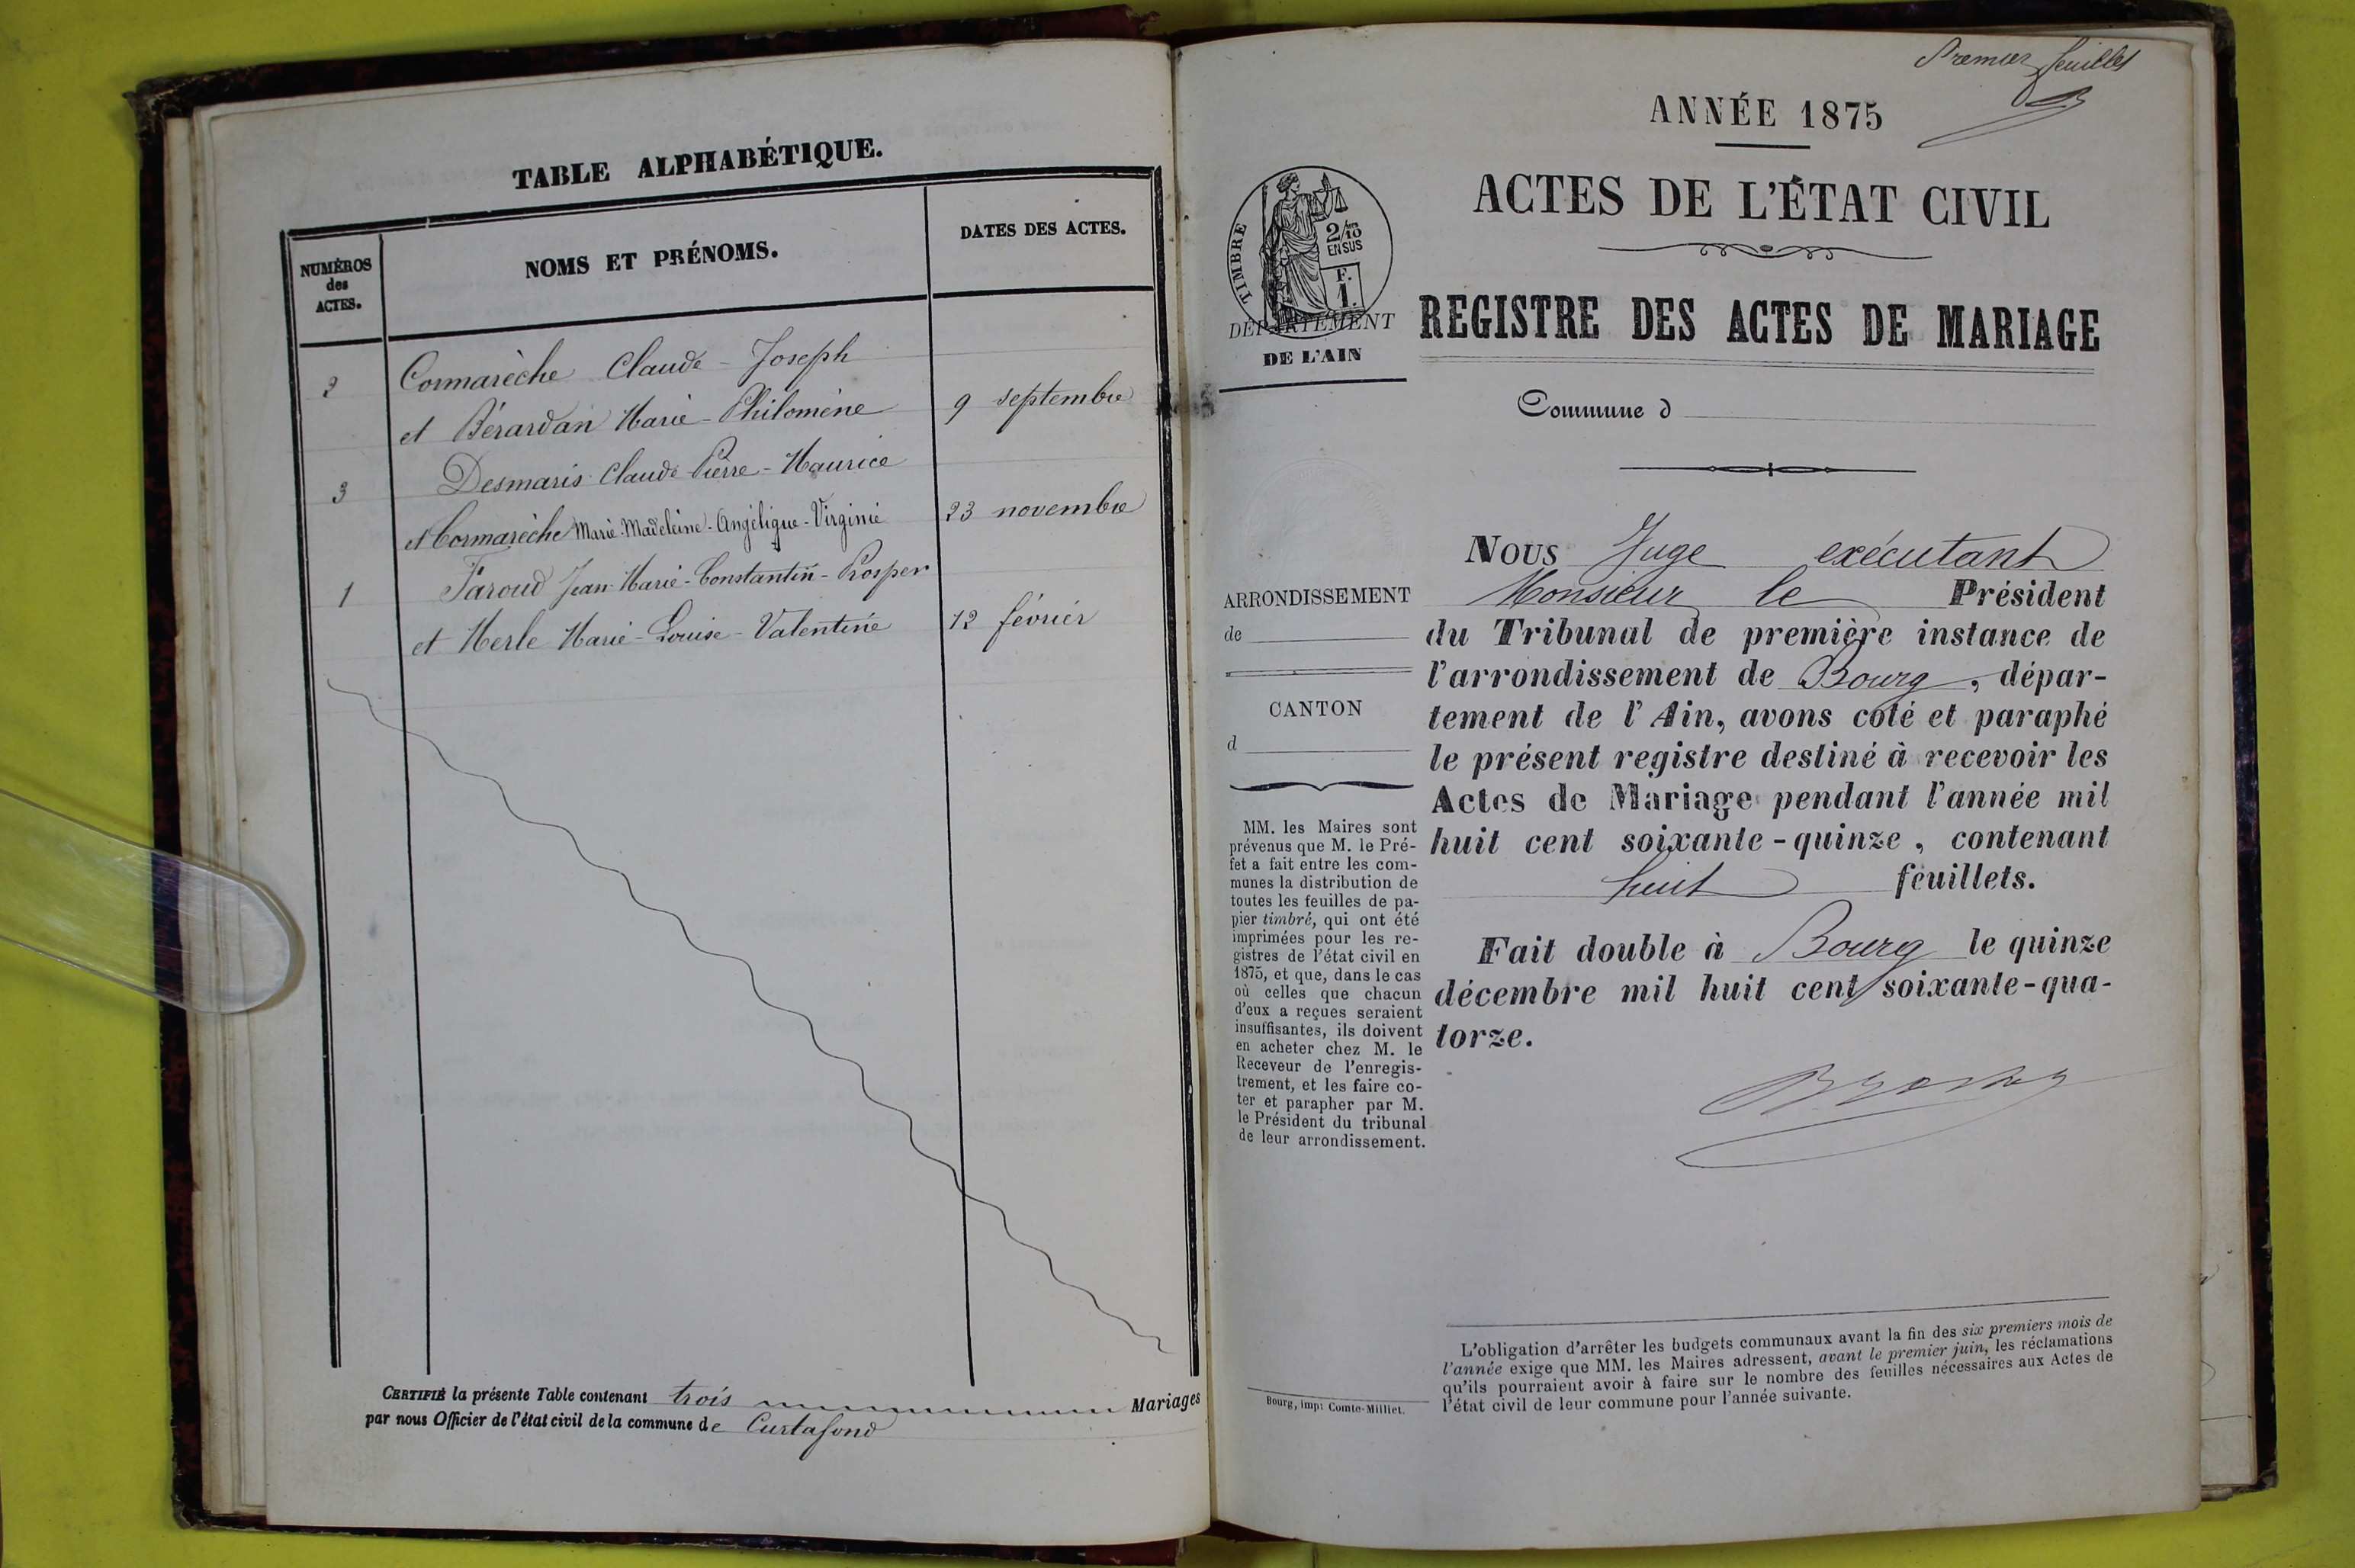 TABLE ALPHABÉTIQUE.
NUMÉROS
des
ACTES.
NOMS ET PRÉNOMS.
DATES DES ACTES.
2 Cormarèche Claude-Joseph
et Bérardan Marie-Philomène 9 septembre
3 Desmaris Claude-Pierre-Maurice
et Cormarèche Marie-Madeleine-Angélique-Virginie 23 novembre
1 Faroud Jean-Marie-Constantin-Prosper
et Merle Marie-Louise-Valentine 12 février
CERTIFIÉ la présente Table contenant trois Mariages
par nous Officier de l'état civil de la commune de Curtafond
Premier feuillet
ANNÉE 1875
ACTES DE L'ÉTAT CIVIL
TIMBRE
2/10
EN SUS
F.
1.
DÉPARTEMENT
DE L'AIN
REGISTRE DES ACTES DE MARIAGE
Commune d
ARRONDISSEMENT
de
CANTON
d
MM. les Maires sont
prévenus que M. le Pré-
fet a fait entre les com-
munes la distribution de
toutes les feuilles de pa-
pier timbré, qui ont été
imprimées pour les re-
gistres de l'état civil en
1875, et que, dans le cas
où celles que chacun
d'eux a reçues seraient
insuffisantes, ils doivent
en acheter chez M. le
Receveur de l'enregis-
trement, et les faire co-
ter et parapher par M.
le Président du tribunal
de leur arrondissement.
Nous Juge exécutant
Monsieur le Président
du Tribunal de première instance de
l'arrondissement de Bourg, dépar-
tement de l'Ain, avons coté et paraphé
le présent registre destiné à recevoir les
Actes de Mariage pendant l'année mil
huit cent soixante-quinze, contenant
huit feuillets.
Fait double à Bourg le quinze
décembre mil huit cent soixante-qua-
torze.
L'obligation d'arrêter les budgets communaux avant la fin des six premiers mois de
l'année exige que MM. les Maires adressent, avant le premier juin, les réclamations
qu'ils pourraient avoir à faire sur le nombre des feuilles nécessaires aux Actes de
l'état civil de leur commune pour l'année suivante.
Bourg, imp: Comte-Milliet.